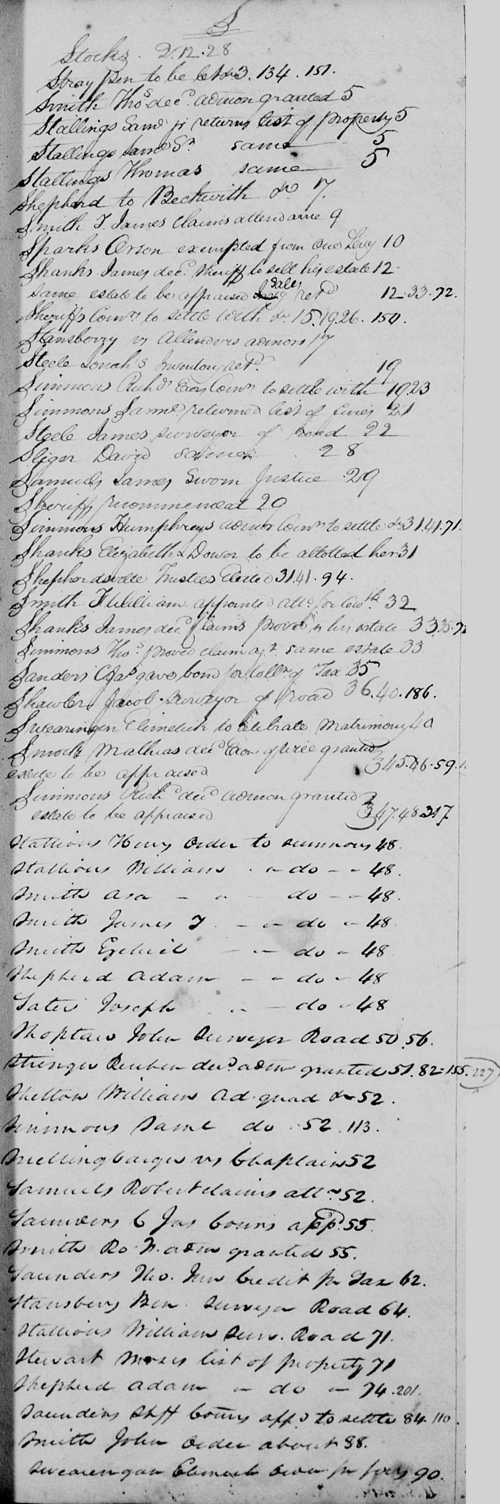 S
Stocks. 2.12.28
Stray pen to be let 3. 134. 151.
Smith Thos decd admon granted 5
Stallings Saml jr returns list of property 5
Stallings Saml Sr same 5
Stallings Thomas same 5
Shepherd to Beckwith &c 7.
Smith T. James Claims attendance 9
Sparks Orson exempted from Co Levy 10
Shanks James decd Sheriff to sell his estate 12.
same estate to be appraised Sales retd 12.33.72.
Sheriff Comrs to settle with &c 15.19.26. 154.
Stansberry vs Allenders admors 17
Steele Inventory retd. 19
Simmons Richd Exors Comrs to settle with 19 23
Simmons Saml returned list of 21
Steele James surveyor of Road 22
Sliger David 28
Samuels James Sworn Justice 29
Sheriffs recommended 20
Simmons Humphreys admor Comrs to settle &c 31.41.71.
Shanks Elizabeth Dower to be allotted her 31
Shepherdsville Trustees Elected 31 41. 94.
Smith William appointed atto for Cowlth. 32
Shanks James decd Claims proved vs his estate 33
Simmons Thos proved claim agt same estate 33
Sanders C Jas gave bond for collg of Tax 35
Shawler Jacob Surveyor of Road 36.40.186.
Swearingen Clement to celebrate Matrimony 40
Smock Mathias decd Exor of granted
estate to be appraised } 45.46.59.
Simmons Richd decd admon granted
estate to be appraised } 47.48.
Stallions Henry Order to summons 48.
Stallions William - do - - 48.
Smith Asa - - do - - 48.
Smith James T. - - do - 48.
Smith Ezekiel - - do - 48
Shepherd Adam - - do - 48
Joseph - do - 48
Shoptaw John Surveyor Road 50.56.
Stringer Reuben decd adm granted 51. 82-155. 227
Shelton William Ad. guad &c 52.
Simmons Saml do. 52. 113.
Snellingbarger vs Chaplain 52
Samuels Robert claims allce 52.
Saunders C Jas Comrs appd. 55.
Smith Ro. adm granted 55.
Saunders Tho. Credit for Tax 62.
Stansbery Ben. Surveyor Road 64.
Stallions William Surv. Road 71.
Stewart Moses list of property 71
Shepherd Adam - do - 74. 201.
Saunders Shff Comrs appd to settle 84. 110.
Smith John Order about 88.
Swearengan Clement Order for 90.